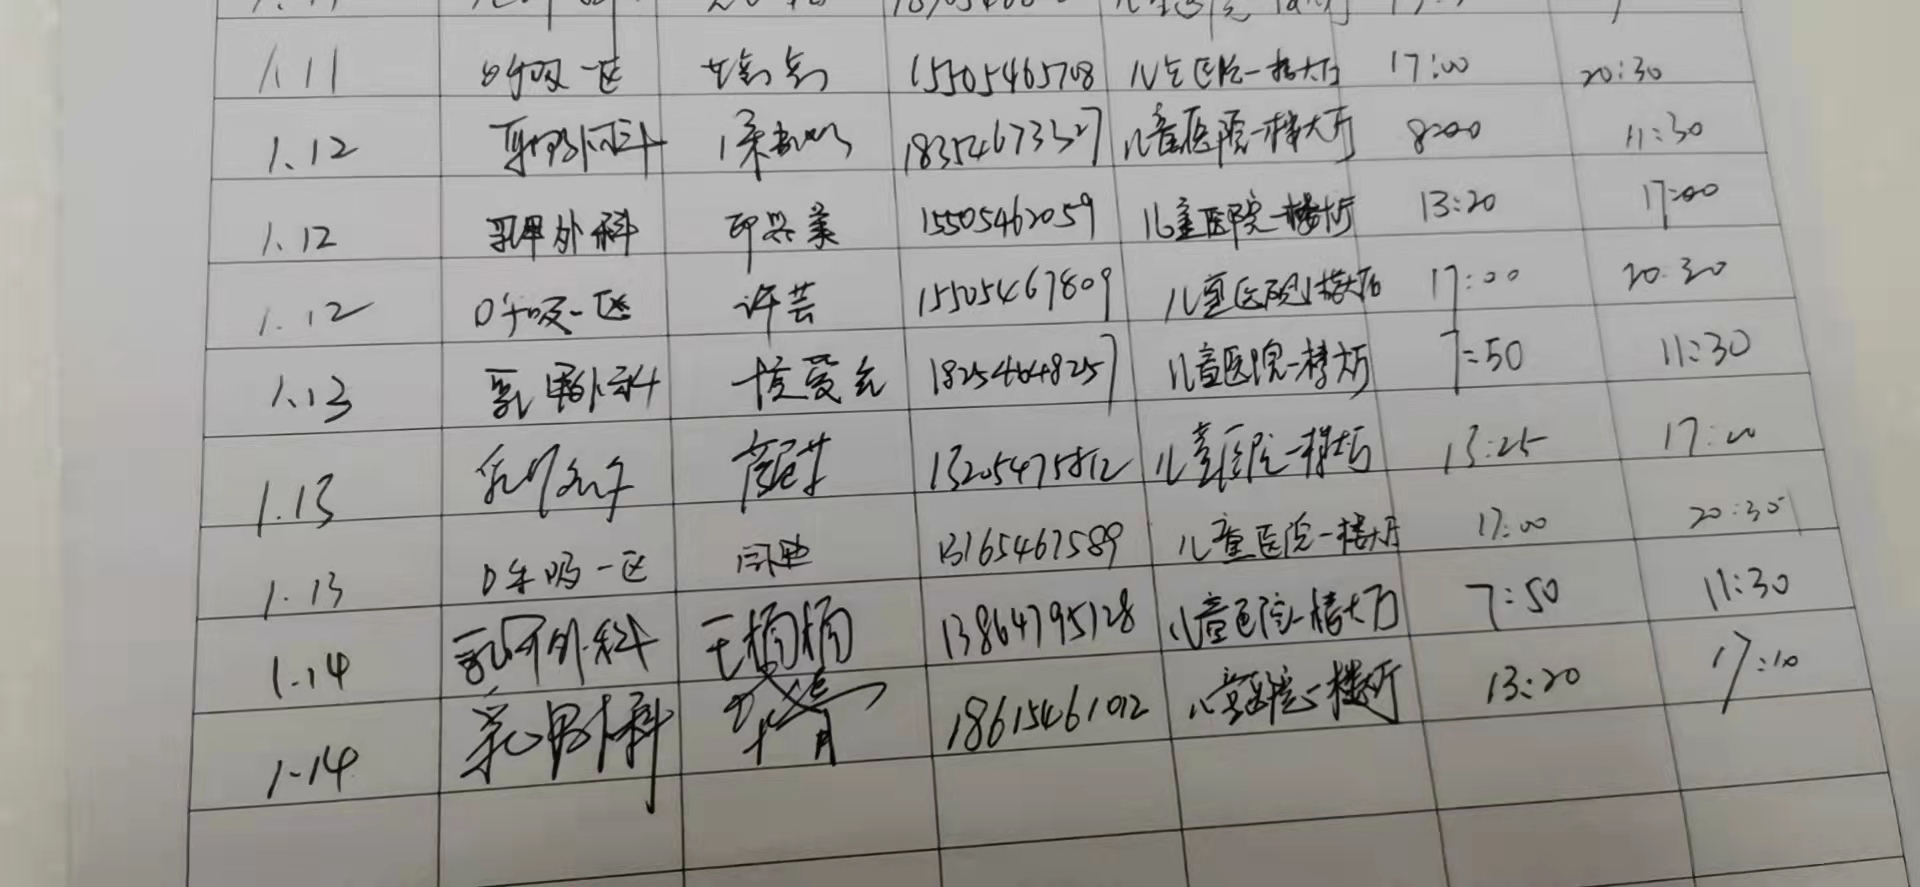 1.11 呼吸一区 15505465708 儿童医院一楼大厅 17:00 20:30
1.12 乳甲外科 18354673327 儿童医院一楼大厅 8:00 11:30
1.12 乳甲外科 15505462059 儿童医院一楼大厅 13:20 17:00
1.12 呼吸一区 许芸 15505467809 儿童医院一楼大厅 17:00 20:30
1.13 乳甲外科 18254648257 儿童医院一楼大厅 7:50 11:30
1.13 乳甲外科 13205475812 儿童医院一楼大厅 13:25 17:00
1.13 呼吸一区 闫迪 13165467589 儿童医院一楼大厅 17:00 20:30
1.14 乳甲外科 王楠楠 13864795128 儿童医院一楼大厅 7:50 11:30
1.14 乳甲外科 18615461012 儿童医院一楼大厅 13:20 17:10